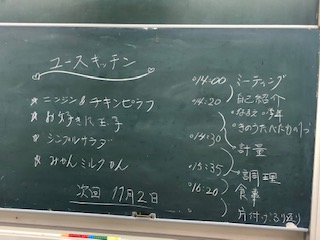 ユースキッチン
☆ニンジン&チキンピラフ
☆お好きに玉子
☆シンプルサラダ
☆みかんミルクかん
次回 11月2日
○14:00 ミーティング
○14:20 自己紹介
・なまえ・学年
・きのうたべたもの1つ
○14:30 計量
○15:35 調理
○16:20 食事
片付け・ふり返り